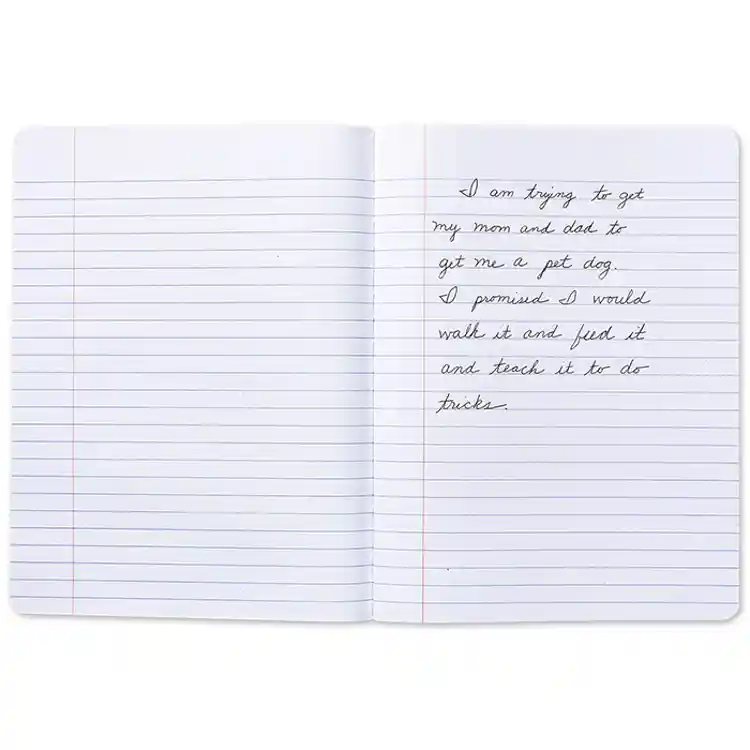 I am trying to get
my mom and dad to
get me a pet dog.
I promised I would
walk it and feed it
and teach it to do
tricks.